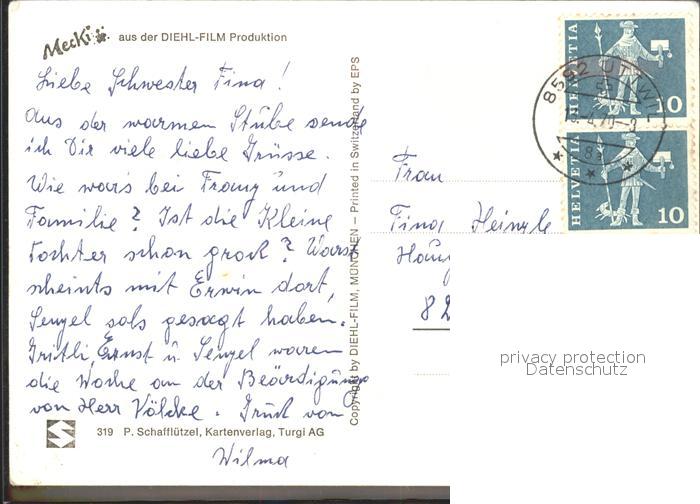 Mecki aus der DIEHL-FILM Produktion
Liebe Schwester Fina!
Aus der warmen Stube sende
ich Dir viele liebe Grüsse.
Wie war's bei Franz und
Familie? Ist die Kleine
Tochter schon gross? Warst
scheints mit Erwin dort,
Sengel sols gesagt haben.
Gritli, Ernst u. Sengel waren
die Woche an der Beärdigung
von Herr Völcke. Gruss von
Wilma
319 P. Schafflützel, Kartenverlag, Turgi AG
Copyright by DIEHL-FILM, MÜNCHEN – Printed in Switzerland by EPS
HELVETIA 10
HELVETIA 10
8592 UTTWIL
Frau
Fina Heinzle
82
privacy protection
Datenschutz